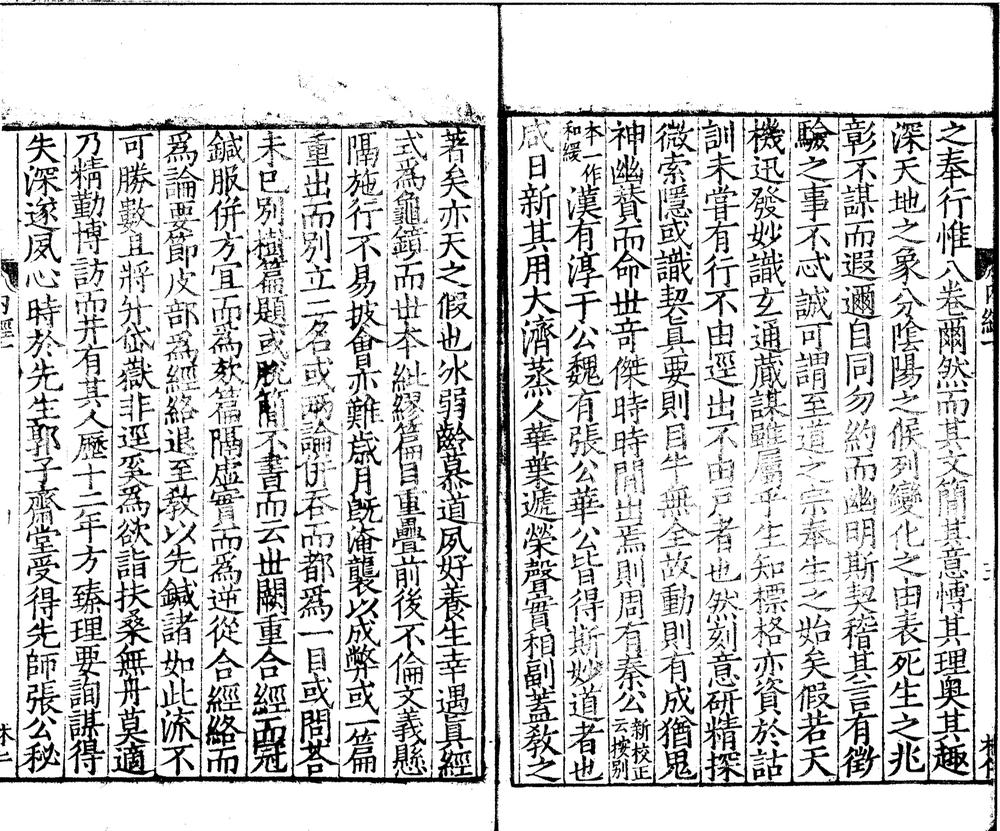 之奉行惟八卷爾然而其文簡其意愽其理奧其趣
深天地之象分隂陽之候列變化之由表死生之兆
彰不謀而遐邇自同勿約而幽明斯契稽其言有徵
驗之事不忒誠可謂至道之宗奉生之始矣假若天
機迅發妙識玄通蕆謀雖屬乎生知標格亦資於詁
訓未嘗有行不由逕出不由戸者也然刻意研精探
微索隱或識契真要則目牛無全故動則有成猶鬼
神幽贊而命丗竒傑時時閒出焉則周有秦公新校正云按别
本一作和緩漢有淳于公魏有張公華公皆得斯妙道者也
咸日新其用大濟蒸人華葉遞榮聲實相副蓋教之
著矣亦天之假也冰弱齡慕道夙好養生幸遇眞經
式爲龜鏡而丗本紕繆篇目重疊前後不倫文義懸
隔施行不易披㑹亦難歳月既淹襲以成弊或一篇
重出而别立二名或兩論併吞而都爲一目或問荅
未已别樹篇題或脫簡不書而云丗闕重合經而冠
鍼服併方宜而爲欬篇隔虛實而爲逆從合經絡而
爲論要節皮部爲經絡退至教以先鍼諸如此流不
可勝數且將升岱嶽非逕奚爲欲詣扶桑無舟莫適
乃精勤博訪而并有其人歷十二年方臻理要詢謀得
失深遂夙心時於先生郭子齋堂受得先師張公秘